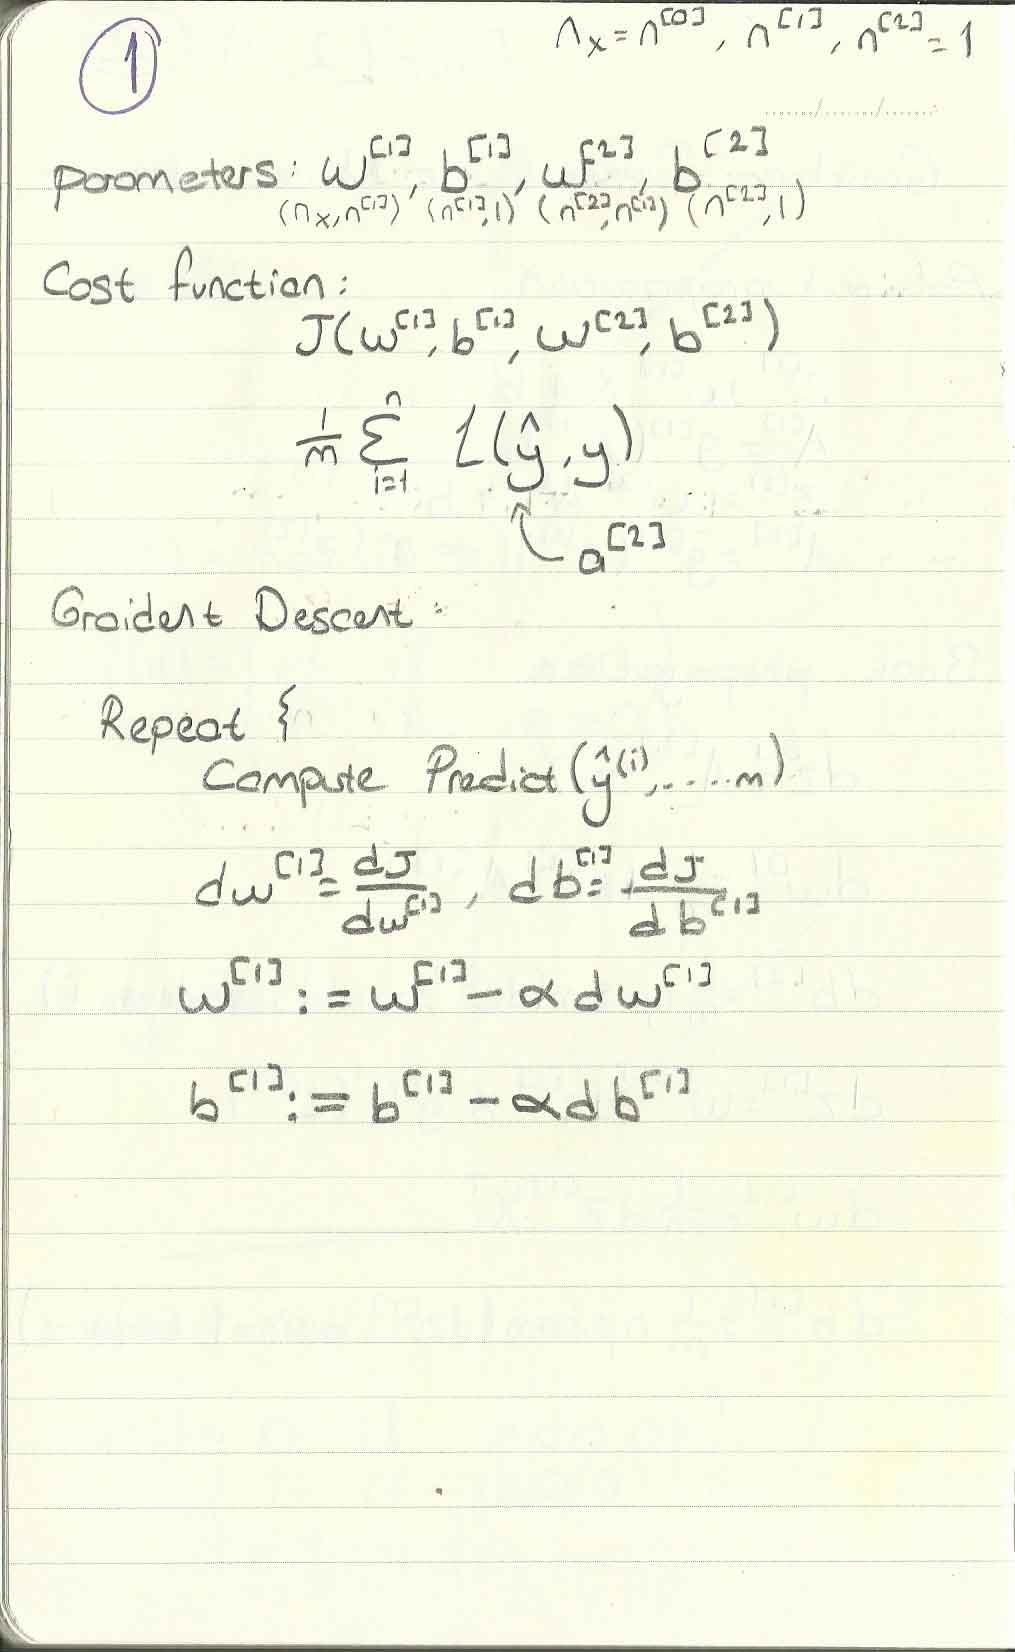 ①
n_x = n^[0], n^[1], n^[2] = 1
parameters: w^[1], b^[1], w^[2], b^[2]
(n_x, n^[1]) (n^[1], 1) (n^[2], n^[1]) (n^[2], 1)
Cost function:
J(w^[1], b^[1], w^[2], b^[2])
1/m Σ_{i=1}^{n} L(ŷ, y)
a^[2]
Graident Descent:
Repeat {
Compute Predict (ŷ^(i), ..... m)
dw^[1] = dJ/dw^[1], db^[1] = dJ/db^[1]
w^[1] := w^[1] - α dw^[1]
b^[1] := b^[1] - α db^[1]